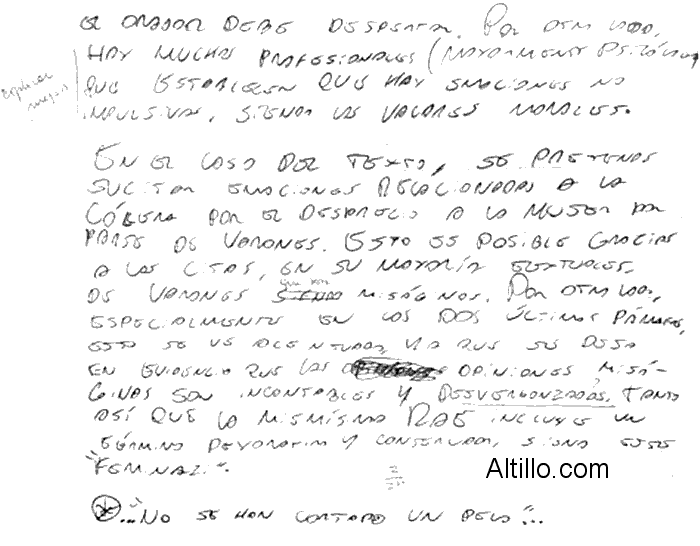 EL ORADOR DEBE DESPERTAR. POR OTRO LADO,
HAY MUCHOS PROFESIONALES (MAYORMENTE PSICÓLOGOS
QUE ESTABLECEN QUE HAY EMOCIONES NO
IMPULSIVAS, SIENDO LOS VALORES MORALES.
explicar mejor
EN EL CASO DEL TEXTO, SE PRETENDE
SUCITAR EMOCIONES RELACIONADAS A LA
CÓLERA POR EL DESPRECIO A LA MUJER POR
PARTE DE VARONES. ESTO ES POSIBLE GRACIAS
A LAS CITAS, EN SU MAYORÍA TEXTUALES,
que son
DE VARONES SIENDO MISÓGINOS. POR OTRO LADO,
ESPECIALMENTE EN LOS DOS ÚLTIMOS PÁRRAFOS,
ESTO SE VE ACENTUADO, YA QUE SE DEJA
EN EVIDENCIA QUE LAS OPINIONES MISÓ-
GINAS SON INCONTABLES Y DESVERGONZADAS, TANTO
ASÍ QUE LA MISMÍSIMA RAE INCLUYE UN
TÉRMINO PEYORATIVO Y CONSERVADOR, SIENDO ESTE
"FEMINAZI".
Altillo.com
* ..."NO SE HAN CORTADO UN PELO"...